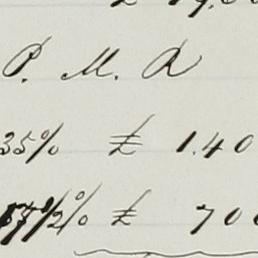 P. M. R
35% £ 1.40
17½% £ 70